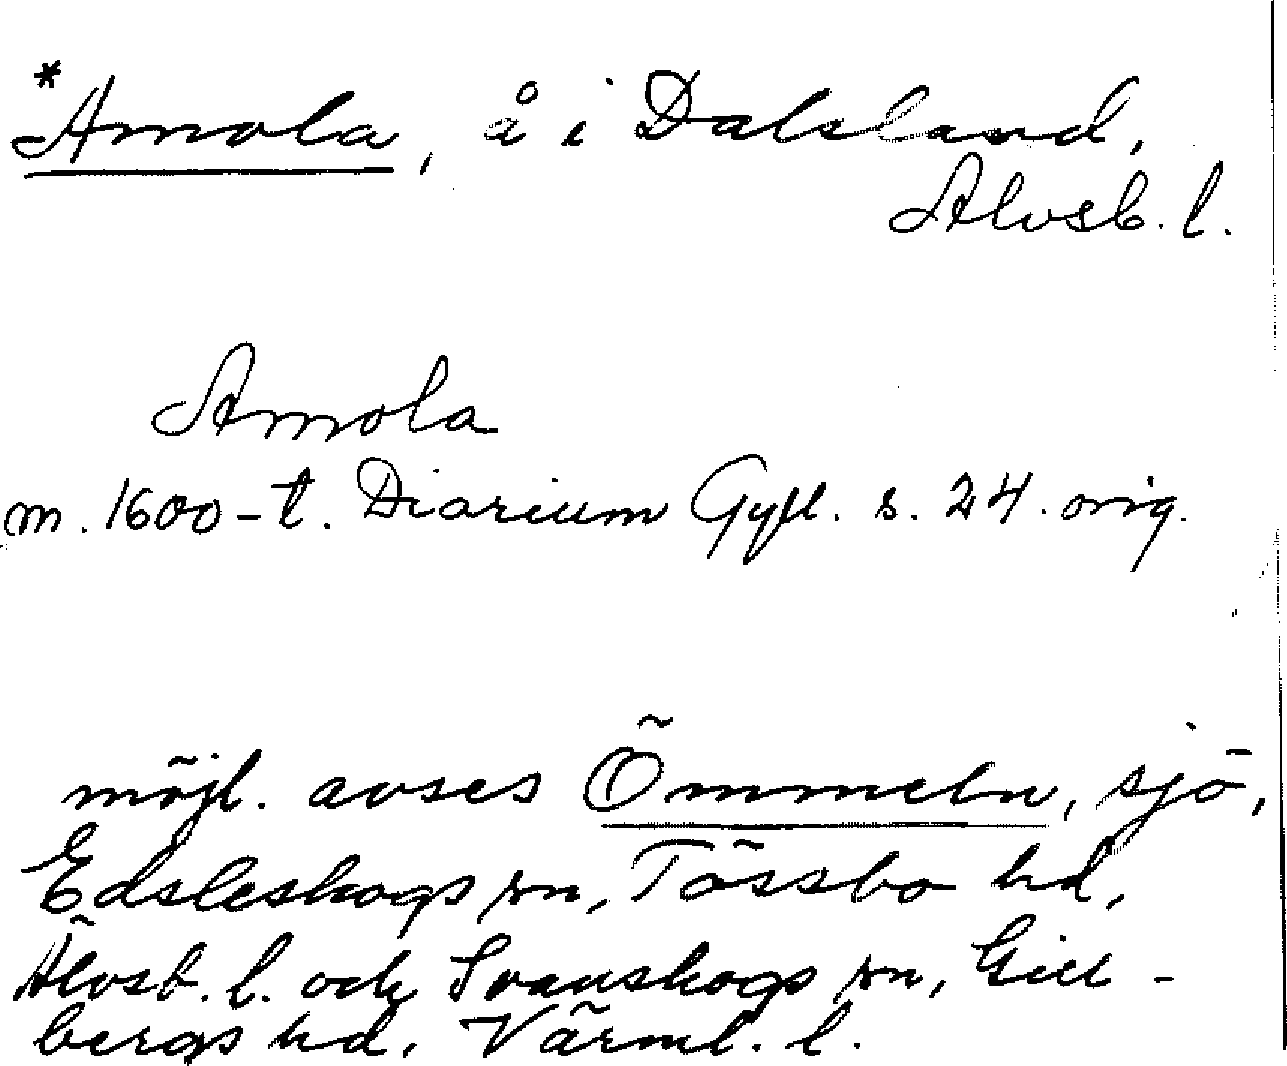 *Amola, å i Dalsland,
Älvsb. l.
Amola
m. 1600-t. Diarium Gyll. s. 24. orig.
möjl. avses Ömmeln, sjö,
Edsleskogs sn, Tössbo hd,
Älvsb. l. och Svanskogs sn, Gill-
bergs hd, Värml. l.